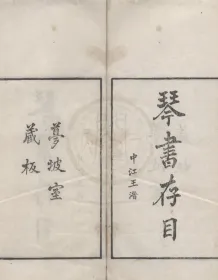 琴書存目
中江王灊
夢坡室
藏板